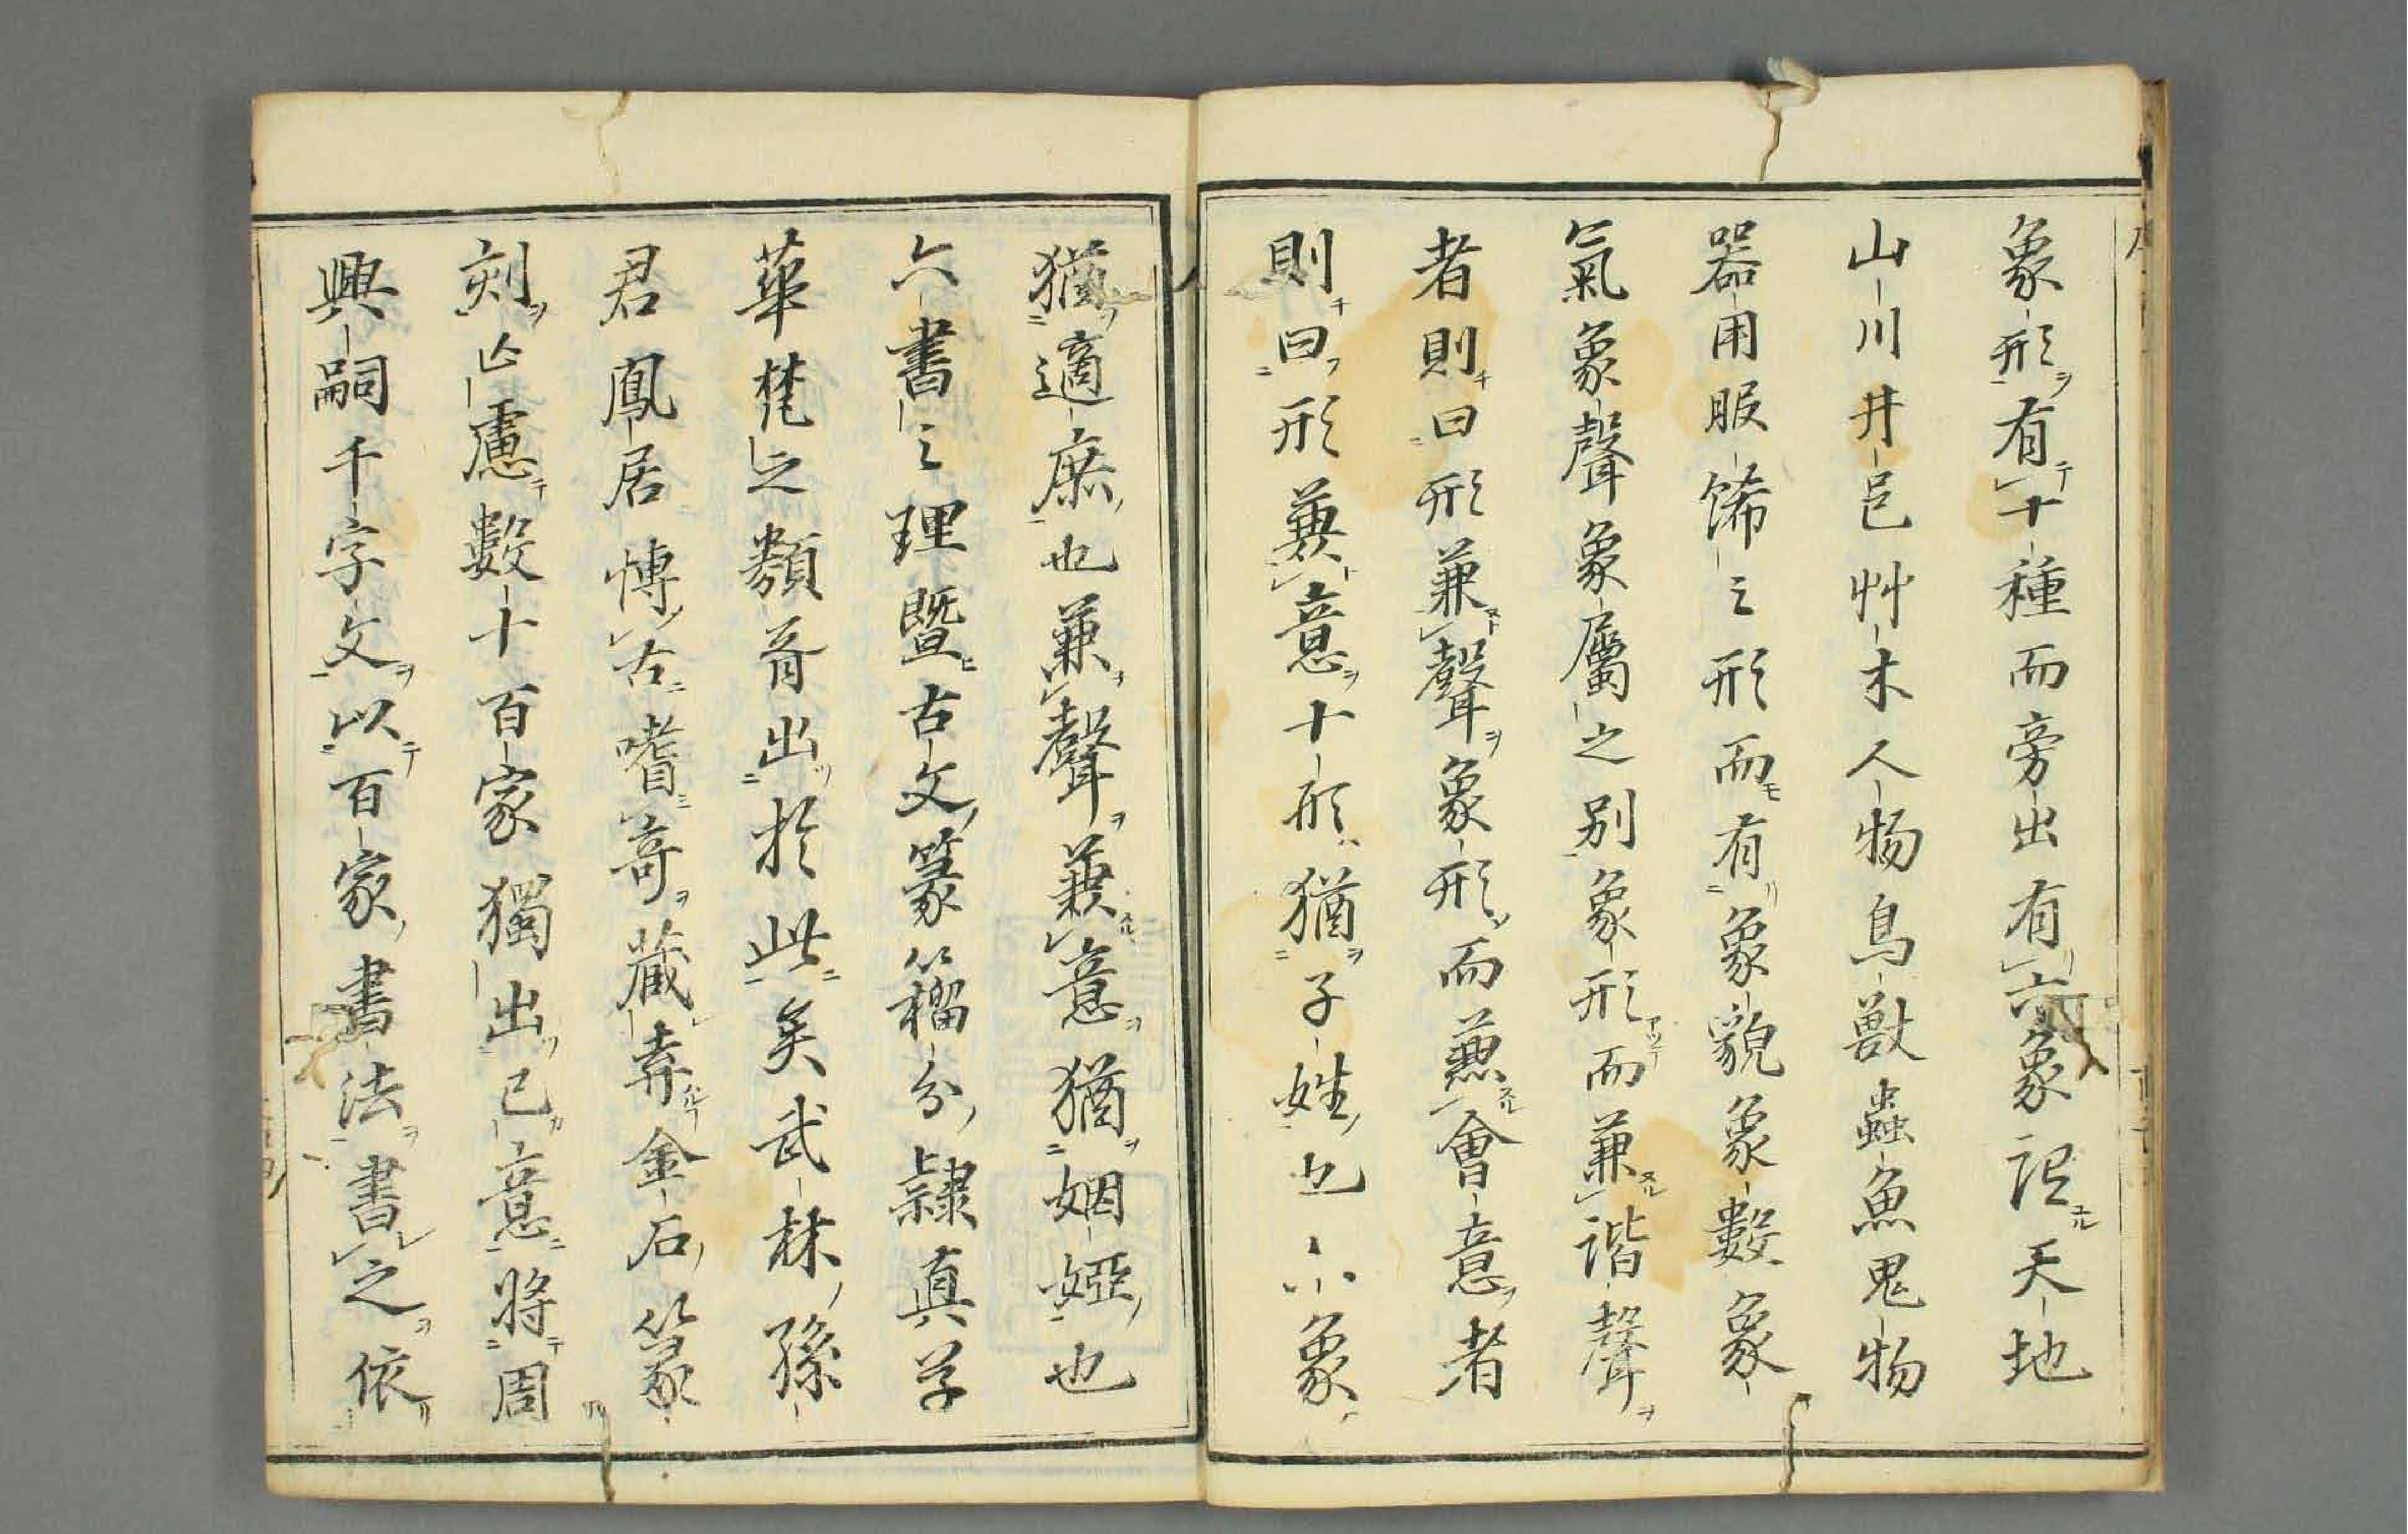 象形有十種而旁出有六象訳天地
山川井邑艸木人物鳥獣蟲魚鬼物
器用服餙之形而有象貌象數象
氣象聲象屬之别象形而兼諧聲
者則曰形兼聲象形而兼會意者
則曰形兼意十形猶子姓也六象
猶適庶也兼聲兼意猶姻婭也
六書之理曁古文篆籀分隷真草
華梵之類胥出於此矣武林孫
君鳳居博古嗜奇藏弆金石篆
刻亾慮數十百家獨出己意將周
興嗣千字文以百家書法書之依